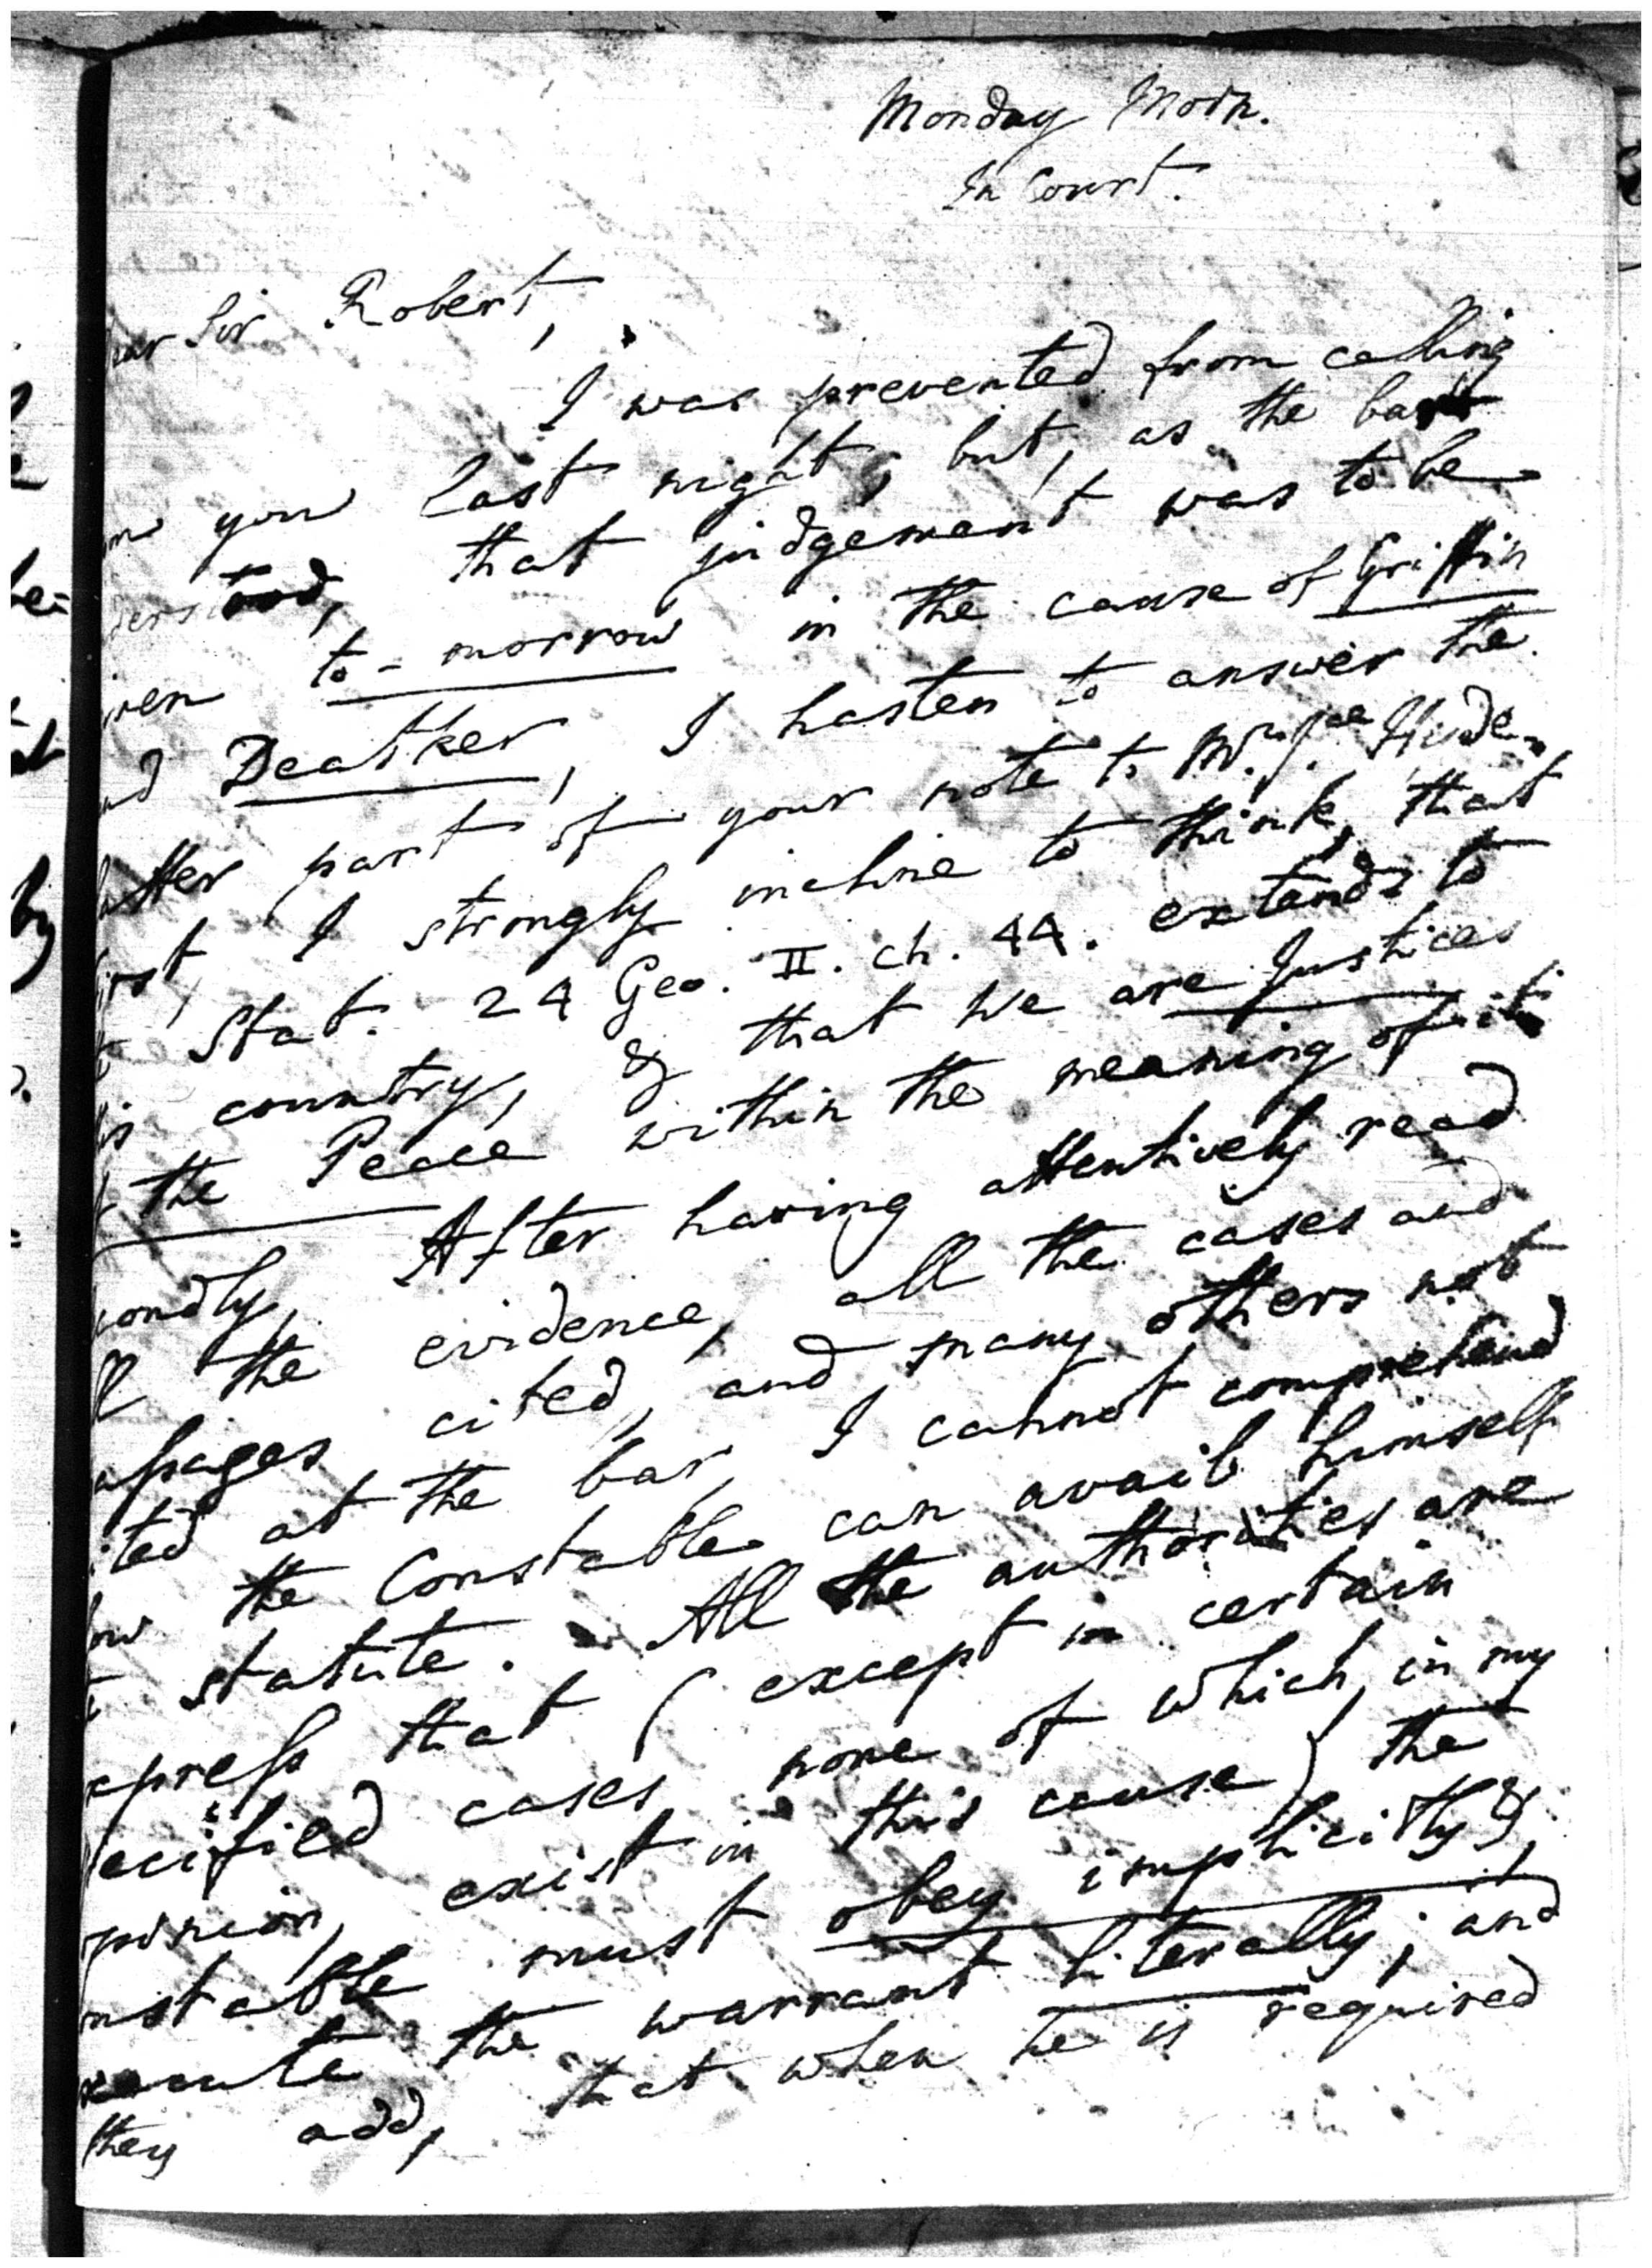 Monday Morn.
In Court.
ear Sir Robert,
I was prevented from calling
on you last night; but, as the bar
derstood, that judgement was to be
iven to-morrow in the cause of Griffin
nd Deatker, I hasten to answer the
latter part of your note to Mr. J.ce Hyde.
irst, I strongly incline to think, that
e Stat. 24 Geo. II. ch. 44. extends to
is country, & that we are Justices
f the Peace within the meaning of it.
condly, After having attentively read
ll the evidence, all the cases and
assages cited, and many others not
ited at the bar, I cannot comprehend
how the Constable can avail himself
e statute. All the authorities are
xpress that (except in certain
ecified cases, none of which, in my
pinion, exist in this cause) the
nstable must obey implicitly &
xecute the warrant literally; and
they add, that when he is required